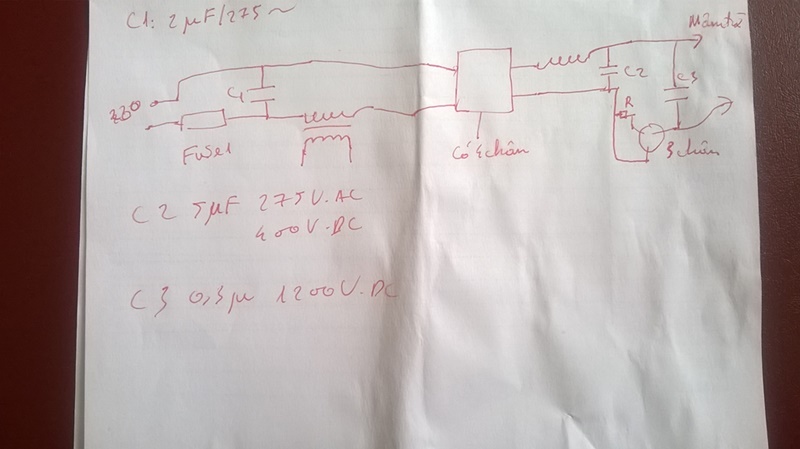 C1: 2µF/275~
Mâm từ
C1
C2
C3
220
R
Fuse1
Có 4 chân
3 chân
C2 5µF 275V.AC
400V.DC
C3 0,3µ 1200V.DC